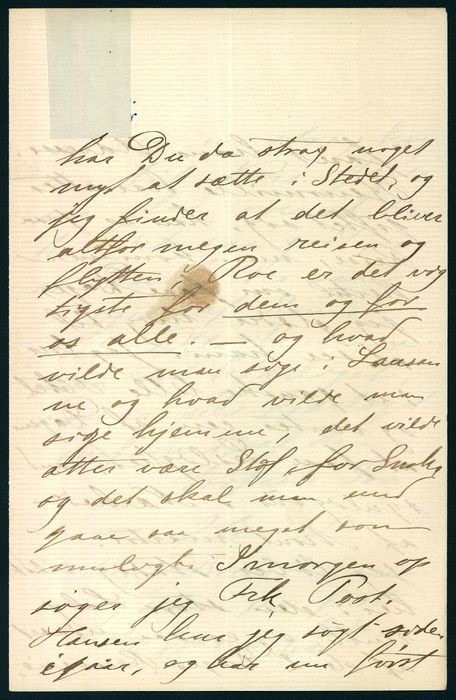 har Du da strax noget
nyt at sætte i Stedet, og
jeg finder at det bliver
altfor megen reisen og
flytten, Roe er det vig
tigste for dem og for
os alle. — og hvad
vilde man sige i Lausan
ne og hvad vilde man
sige hjemme, det vilde
atter være Stof for Snak,
og det skal man und
gaae saa meget som
muligt. Imorgen op
søger jeg Frk,
Hansen har jeg søgt
igaar, og har nu først